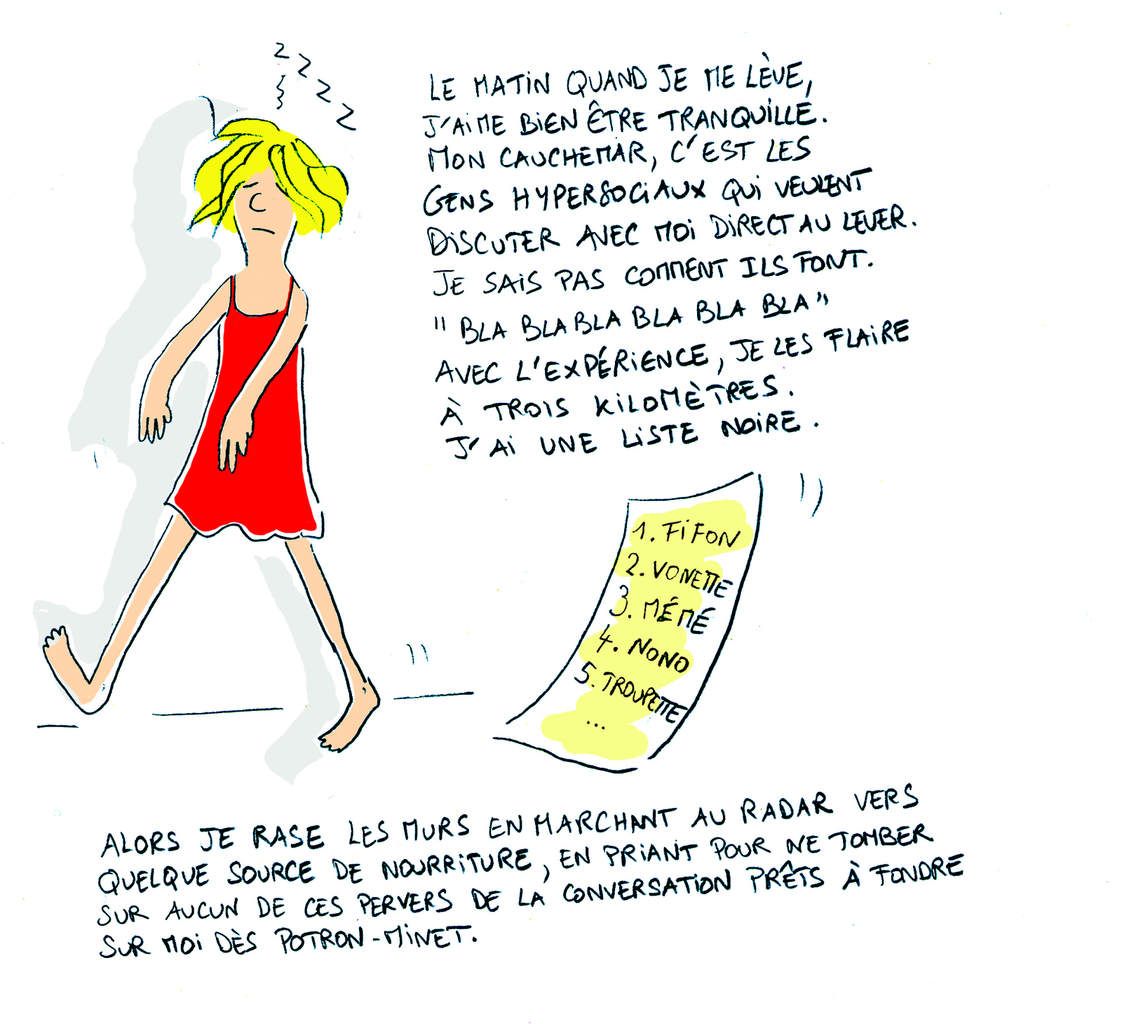 Z
Z
Z
Z
LE MATIN QUAND JE ME LÈVE,
J'AIME BIEN ÊTRE TRANQUILLE.
MON CAUCHEMAR, C'EST LES
GENS HYPERSOCIAUX QUI VEULENT
DISCUTER AVEC MOI DIRECT AU LEVER.
JE SAIS PAS COMMENT ILS FONT.
"BLA BLA BLA BLA BLA BLA"
AVEC L'EXPÉRIENCE, JE LES FLAIRE
À TROIS KILOMÈTRES.
J'AI UNE LISTE NOIRE.
1. FIFON
2. VONETTE
3. MÉMÉ
4. NONO
5. TROUPETTE
...
ALORS JE RASE LES MURS EN MARCHANT AU RADAR VERS
QUELQUE SOURCE DE NOURRITURE, EN PRIANT POUR NE TOMBER
SUR AUCUN DE CES PERVERS DE LA CONVERSATION PRÊTS À FONDRE
SUR MOI DÈS POTRON-MINET.